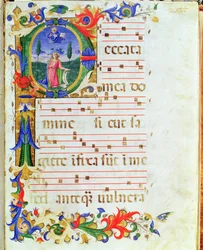 Peccata
mea do
mine sicut sa
gitte īfixa sūt ī me
sed anteq̄ vulnera